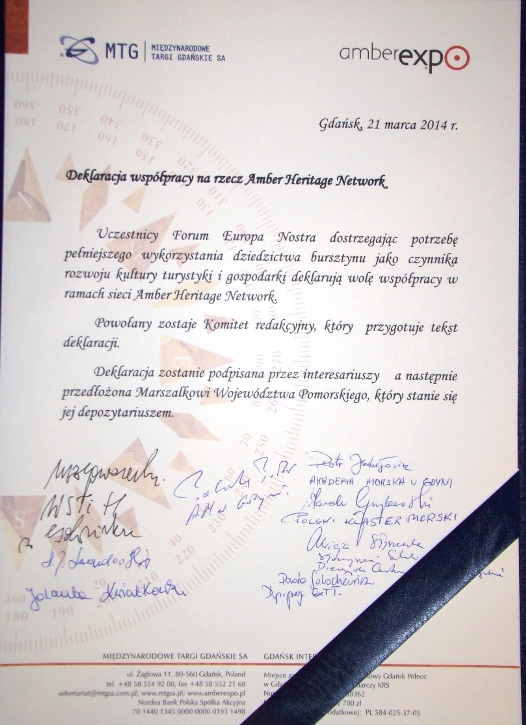 MTG
MIĘDZYNARODOWE
TARGI GDAŃSKIE SA
amberexpo
Gdańsk, 21 marca 2014 r.
Deklaracja współpracy na rzecz Amber Heritage Network
Uczestnicy Forum Europa Nostra dostrzegając potrzebę
pełniejszego wykorzystania dziedzictwa bursztynu jako czynnika
rozwoju kultury turystyki i gospodarki deklarują wolę współpracy w
ramach sieci Amber Heritage Network.
Powołany zostaje Komitet redakcyjny, który przygotuje tekst
deklaracji.
Deklaracja zostanie podpisana przez interesariuszy a następnie
przedłożona Marszałkowi Województwa Pomorskiego, który stanie się
jej depozytariuszem.
WSTiH
Jolanta
Piotr
AKADEMIA MORSKA W GDYNI
Marek
POLSKI KLASTER MORSKI
Alicja
MIĘDZYNARODOWE TARGI GDAŃSKIE SA
ul. Żaglowa 11, 80-560 Gdańsk, Poland
tel. +48 58 554 92 00, fax +48 58 552 21 68
sekretariat@mtgsa.com.pl, www.mtgsa.pl; www.amberexpo.pl
Nordea Bank Polska Spółka Akcyjna
70 1440 1345 0000 0000 0193 1498
GDAŃSK INTER
Miejsce
w Gda
owy Gdańsk Północ
darczy KRS
8362
700 zł
odatkowej: PL 584-025-37-05